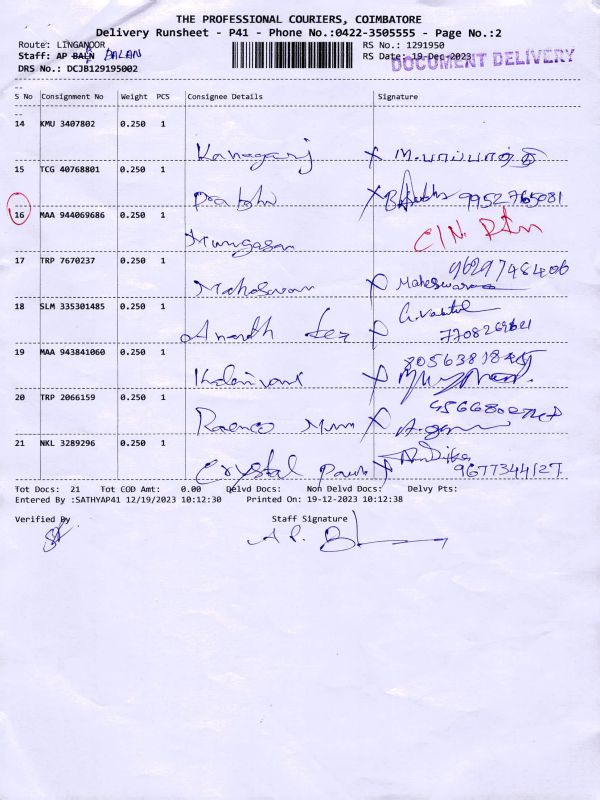 THE PROFESSIONAL COURIERS, COIMBATORE
Delivery Runsheet - P41 - Phone No.:0422-3505555 - Page No.:2
Route: LINGANOOR RS No.: 1291950
Staff: AP BALAN RS Date: 19-Dec-2023
DOCUMENT DELIVERY
DRS No.: DCJB129195002
S No Consignment No Weight PCS Consignee Details Signature
14 KMU 3407802 0.250 1
Kanagaraj X
15 TCG 40768801 0.250 1
Prabhu X 9952765081
16 MAA 944069686 0.250 1
Murugasan
17 TRP 7670237 0.250 1
Maheswaran X Maheswaran
18 SLM 335301485 0.250 1
Anandh X 7708269621
19 MAA 943841060 0.250 1
X
20 TRP 2066159 0.250 1
X
21 NKL 3289296 0.250 1
Crystal X 9677344127
Tot Docs: 21 Tot COD Amt: 0.00 Delvd Docs: Non Delvd Docs: Delvy Pts:
Entered By :SATHYAP41 12/19/2023 10:12:30 Printed On: 19-12-2023 10:12:38
Verified By Staff Signature
A P. B